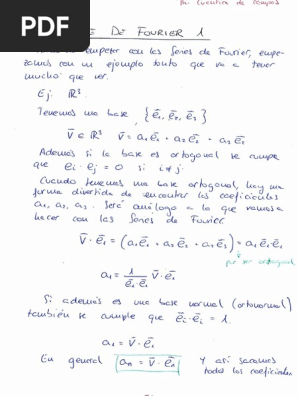 PDF
DE FOURIER 1
empezar con las Series de Fourier, empe-
zamos con un ejemplo tonto que va a tener
mucho que ver.
Ej: ℝ³.
Tenemos una base, {e⃗₁, e⃗₂, e⃗₃}
v̄ ∈ ℝ³ v̄ = a₁e⃗₁ + a₂e⃗₂ + a₃e⃗₃
Además si la base es ortogonal se cumple
que e⃗ᵢ · e⃗ⱼ = 0 si i ≠ j.
Cuando tenemos una base ortogonal, hay una
forma divertida de encontrar los coeficientes
a₁, a₂, a₃. Será análogo a lo que vamos a
hacer con las Series de Fourier.
v̄ · e⃗₁ = (a₁e⃗₁ + a₂e⃗₂ + a₃e⃗₃) = a₁ e⃗₁ e⃗₁
por ser ortogonal
a₁ = 1/(e⃗₁ · e⃗₁) v̄ · e⃗₁
Si además es una base normal (ortonormal)
también se cumple que e⃗ᵢ · e⃗ᵢ = 1.
a₁ = v̄ · e⃗₁
En general aₙ = v̄ · e⃗ₙ Y así sacamos
todos los coeficientes